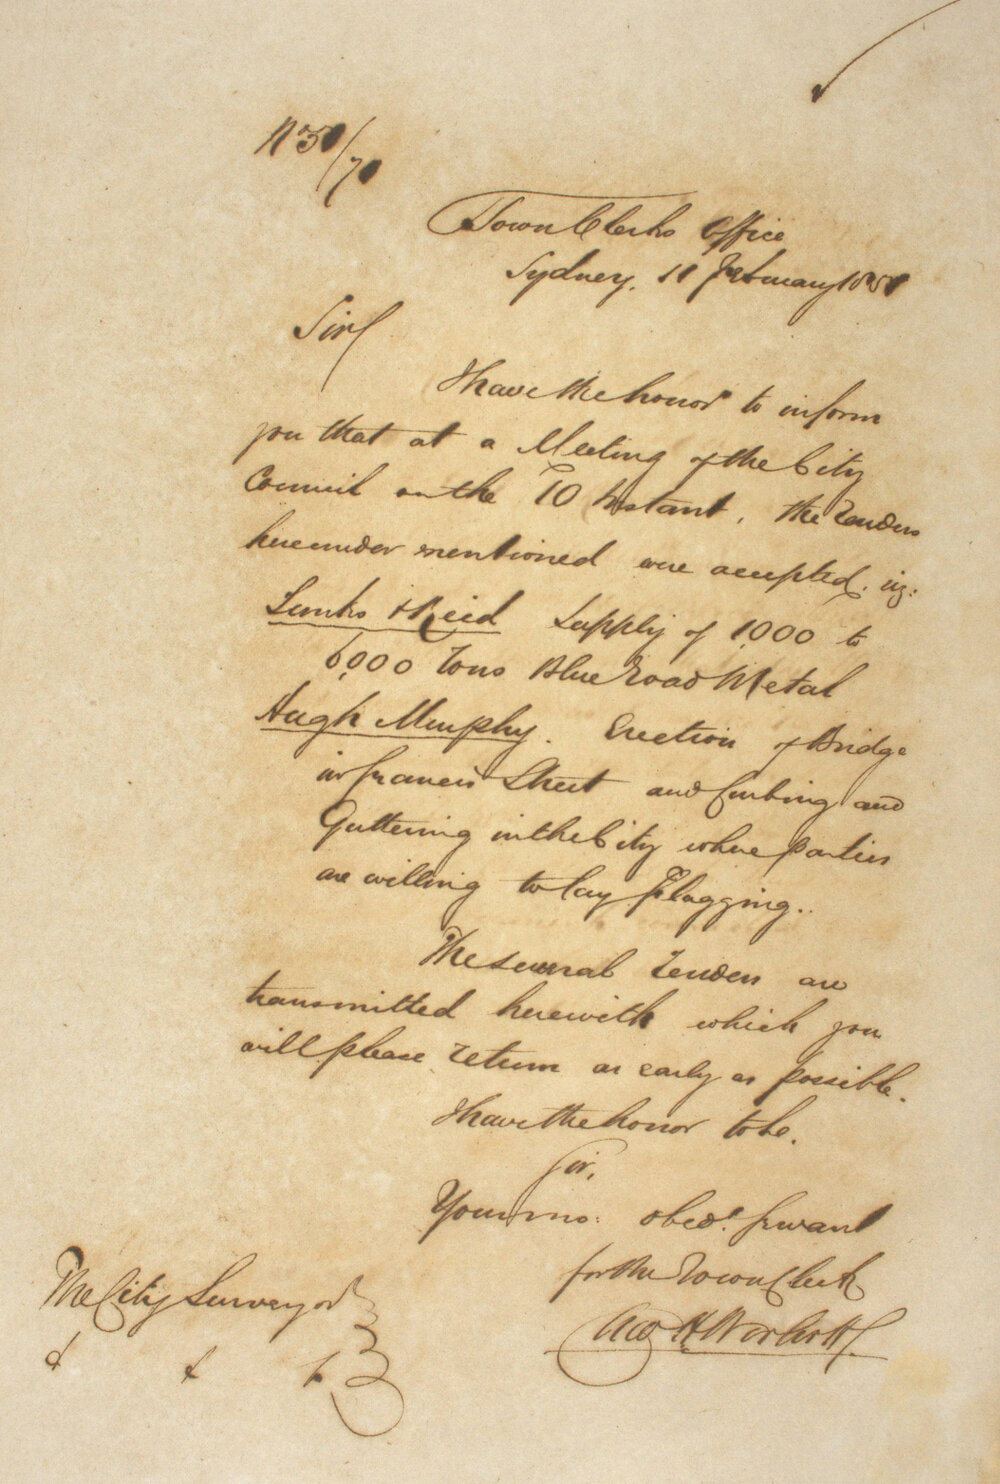 No 50/70
Town Clerks Office
Sydney, 11 February 1851
Sir/
I have the honor to inform
you that at a Meeting of the City
Council on the 10 Instant, the Tenders
hereunder mentioned were accepted. viz:
& Reid Supply of 1,000 to
6,000 Tons Blue Road Metal
Hugh Murphy. Erection of Bridge
in Francis Street and Curbing and
Guttering in the City where parties
are willing to lay Flagging..
The several Tenders are
transmitted herewith which you
will please return as early as possible.
I have the honor to be.
Sir,
Your mo: obedt. Servant
for the Town Clerk
The City Surveyor
&c &c &c